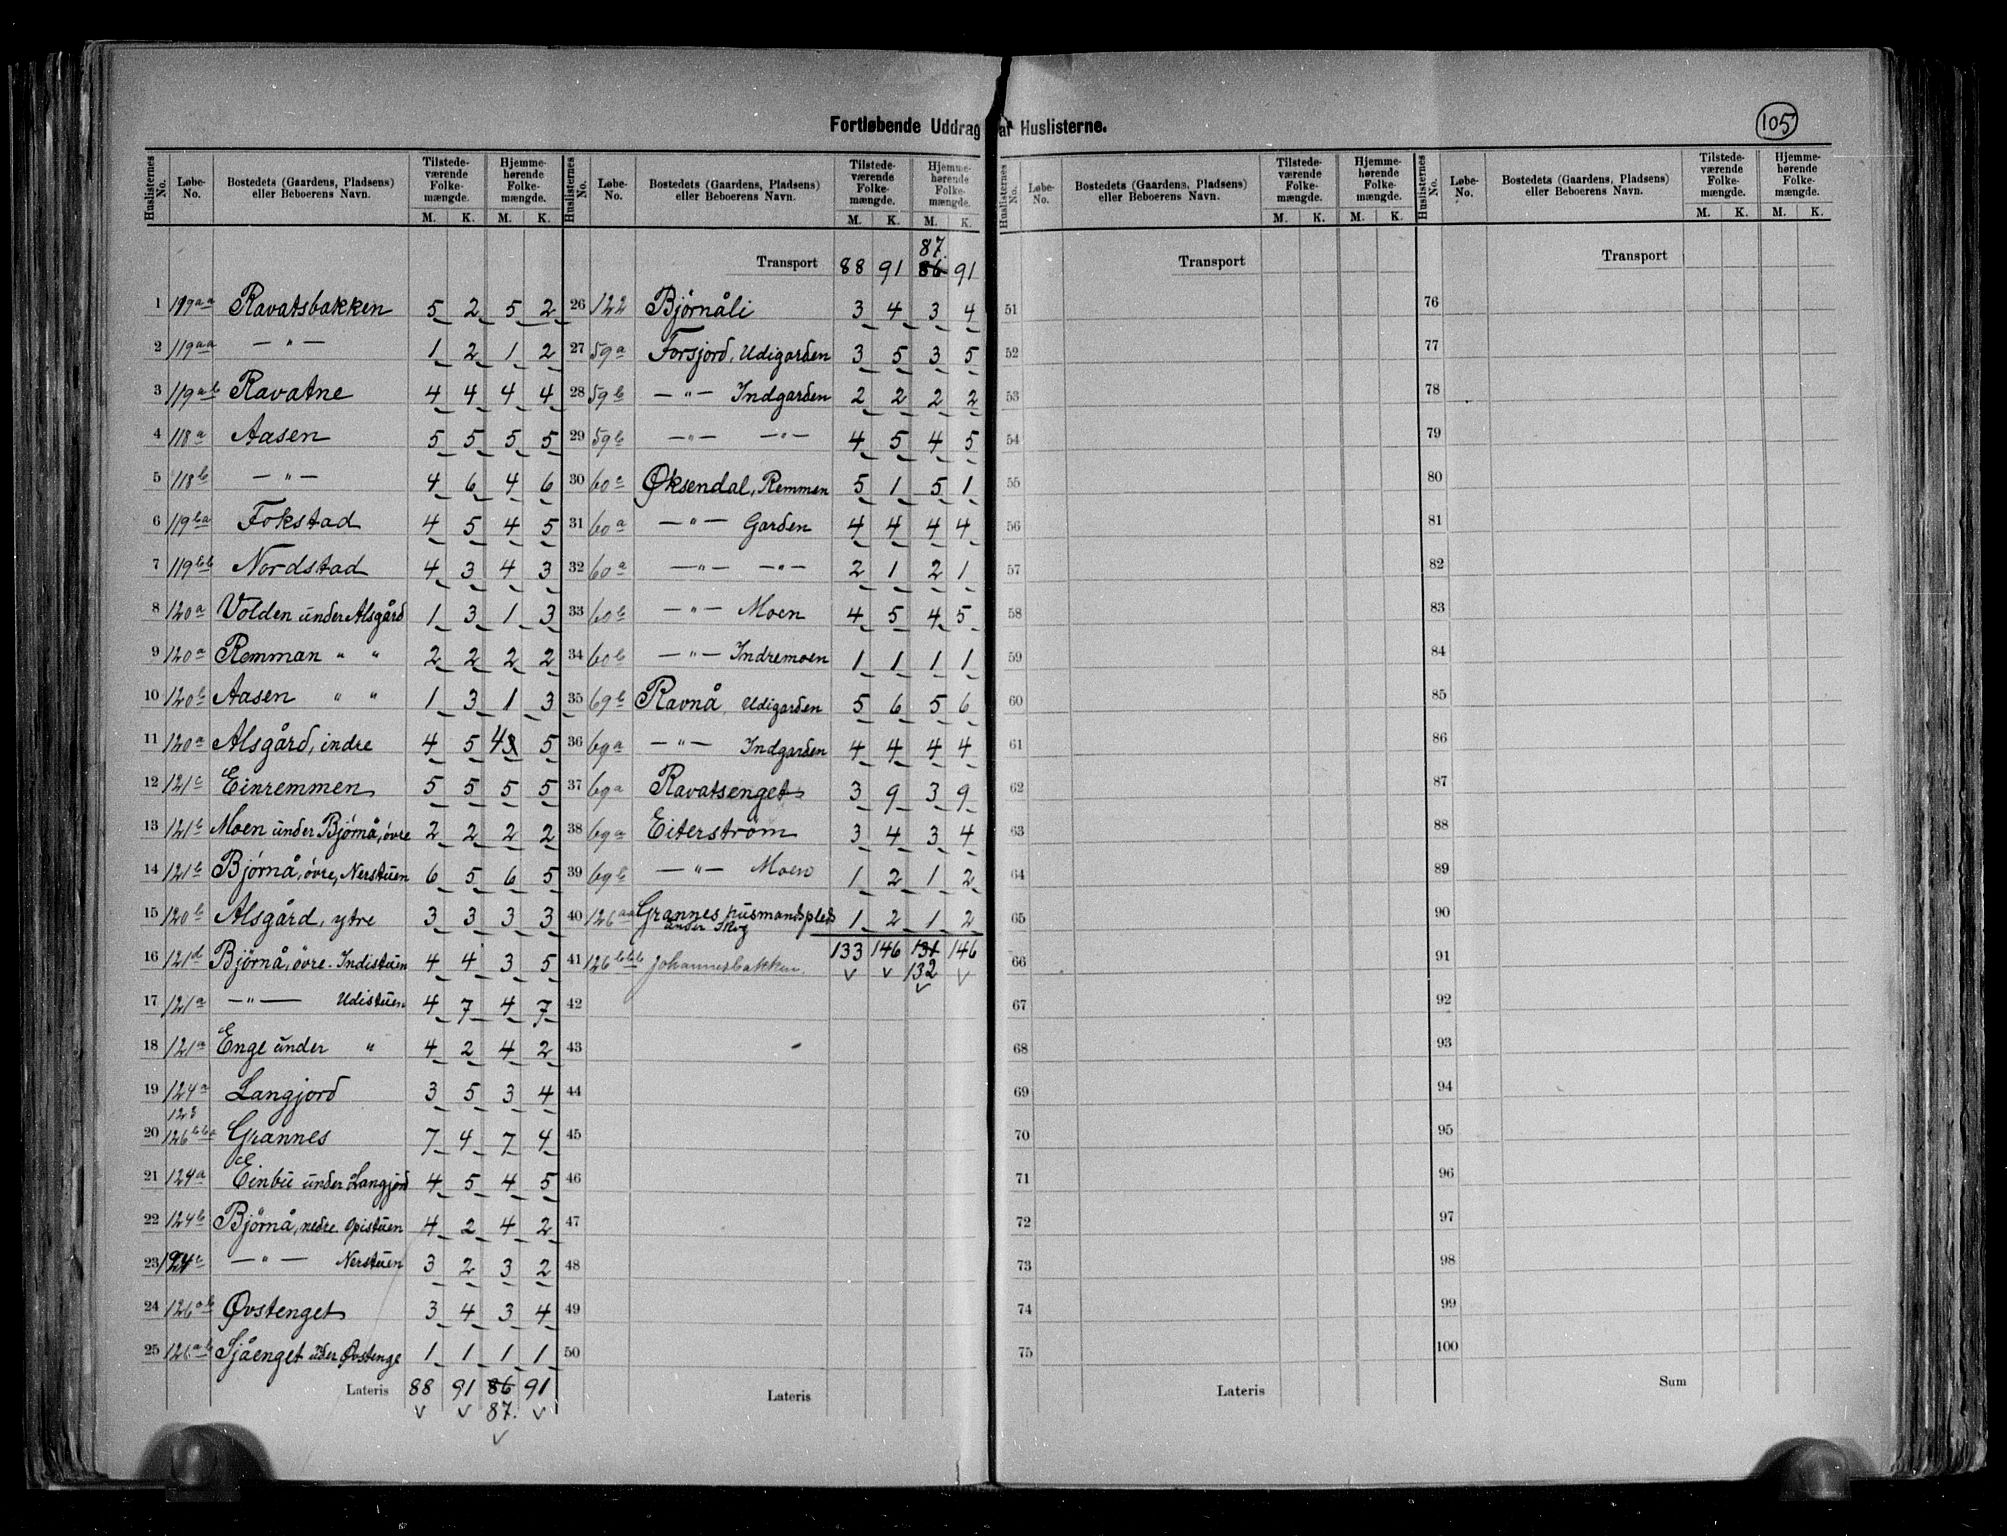 Fortløbende Uddrag af Huslisterne.
105
Huslisternes No. Løbe-No. Bostedets (Gaardens, Pladsens) eller Beboerens Navn. Tilstedeværende Folkemængde. M. K. Hjemmehørende Folkemængde. M. K.
1 119aa Ravatsbakken 5 2 5 2
2 119aa — " — 1 2 1 2
3 119ab Ravatne 4 4 4 4
4 118a Aasen 5 5 5 5
5 118b — " — 4 6 4 6
6 119ba Fokstad 4 5 4 5
7 119bb Nordstad 4 3 4 3
8 120a Volden under Alsgård 1 3 1 3
9 120a Remman " " 2 2 2 2
10 120b Aasen " " 1 3 1 3
11 120a Alsgård, indre 4 5 4 5
12 121c Einremmen 5 5 5 5
13 121b Moen under Bjørnå, övre 2 2 2 2
14 121b Bjørnå, övre, Nerstuen 6 5 6 5
15 120b Alsgård, ytre 3 3 3 3
16 121d Bjørnå, övre - Indistuen 4 4 3 5
17 121a — " — Udistuen 4 7 4 7
18 121a Enge under " 4 2 4 2
19 124a Langjord 3 5 3 4
123
20 126bba Grannes 7 4 7 4
21 124a Einbu under Langjord 4 5 4 5
22 124b Bjørnå, nedre Opistuen 4 2 4 2
23 124c — " — Nerstuen 3 2 3 2
24 126ab Øvstenget 3 4 3 4
25 126ab Sjåenget under Øvstenge 1 1 1 1
Lateris 88 91 86 91
87.
Huslisternes No. Løbe-No. Bostedets (Gaardens, Pladsens) eller Beboerens Navn. Tilstedeværende Folkemængde. M. K. Hjemmehørende Folkemængde. M. K.
87.
Transport 88 91 86 91
26 122 Bjørnåli 3 4 3 4
27 59a Forsjord, Udigarden 3 5 3 5
28 59b — " — Indgarden 2 2 2 2
29 59b — " — — " — 4 5 4 5
30 60a Øksendal, Remmen 5 1 5 1
31 60a — " — Garden 4 4 4 4
32 60a — " — — " — 2 1 2 1
33 60b — " — Moen 4 5 4 5
34 60b — " — Indremoen 1 1 1 1
35 69b Ravnå, Udigarden 5 6 5 6
36 69a — " — Indgarden 4 4 4 4
37 69a Ravatsenget 3 9 3 9
38 69a Eiterstrøm 3 4 3 4
39 69b — " — Moen 1 2 1 2
40 126aa Grannes husmandsplads under Skog 1 2 1 2
133 146 131 146
41 126bbb Johannesbakken 132
42
43
44
45
46
47
48
49
50
Lateris
Huslisternes No. Løbe-No. Bostedets (Gaardens, Pladsens) eller Beboerens Navn. Tilstedeværende Folkemængde. M. K. Hjemmehørende Folkemængde. M. K.
Transport
51
52
53
54
55
56
57
58
59
60
61
62
63
64
65
66
67
68
69
70
71
72
73
74
75
Lateris
Huslisternes No. Løbe-No. Bostedets (Gaardens, Pladsens) eller Beboerens Navn. Tilstedeværende Folkemængde. M. K. Hjemmehørende Folkemængde. M. K.
Transport
76
77
78
79
80
81
82
83
84
85
86
87
88
89
90
91
92
93
94
95
96
97
98
99
100
Sum